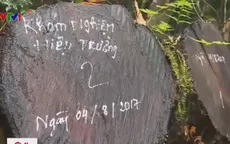 VTV1
Khám Nghiệm
Hiện Trường
2
Ngày 04/8/2017